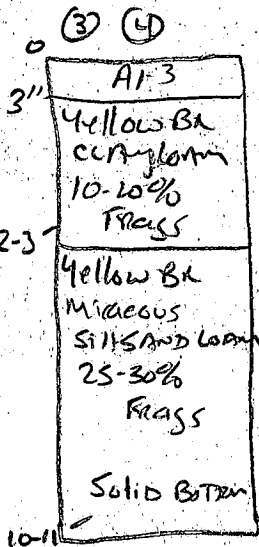 ③ ④
0
A1-3
3"
Yellow BR
CLAY LOAM
10-20%
FRAGS
2-3
Yellow BR
Micaceous
Silt SAND LOAM
25-30%
FRAGS
Solid BOTTOM
10-11